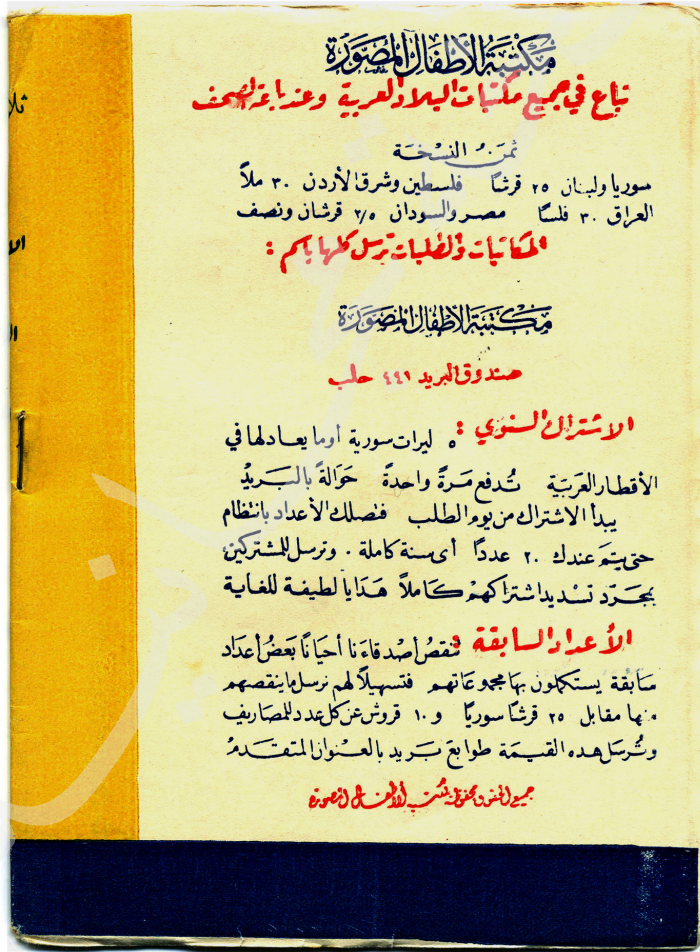 مكتبة الأطفال المصورة
تباع في جميع مكتبات البلاد العربية وعند باعة الصحف
ثمن النسخة
سوريا ولبنان ٢٥ قرشاً فلسطين وشرق الأردن ٣٠ ملاً
العراق ٣٠ فلساً مصر والسودان ٢/٥ قرشان ونصف
المكاتبات والطلبات ترسل كلها باسم :
مكتبة الأطفال المصورة
صندوق البريد ٤٤١ حلب
الاشتراك السنوي : ٥ ليرات سورية أو ما يعادلها في
الأقطار العربية تُدفع مَرةً واحدةً حَوَالةً بالبَريدْ
يبدأ الاشتراك من يوم الطلب فتصلك الأعداد بانتظام
حتى يتمَ عندك ٢٠ عدداً أى سنة كاملة . وترسل للمشتركين
بمجرّد تسْديد اشتراكهمْ كَاملاً هَدَايا لطيفة للغاية
الأعداد السابقة : تنقصُ أصدقاءَنا أحيَاناً بَعضُ أعداد
سَابقة يستكملون بها مجموعَاتهم فتسهيلاً لهم نرسل ما ينقصهم
منها مقابل ٢٥ قرشاً سورياً و ١٠ قروش عن كل عدد للمصاريف
وتُرسَل هذه القيمَة طوابعَ بَريد بالعنوان المتقدمْ
جميع الحقوق محفوظة لمكتبة الأطفال المصورة
ثلا
الا
ال